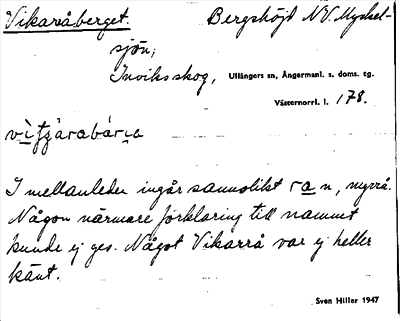 Vikaråberget. Bergshöjd NV. Mysket-
sjön,
Inviksskog, Ullångers sn, Ångermanl. s. doms. tg.
Västernorrl. l. 178.
I mellanleden ingår sannolikt ran, myrrå.
Någon närmare förklaring till namnet
kunde ej ges. Något Vikarrå var ej heller
känt.
Sven Hiller 1947